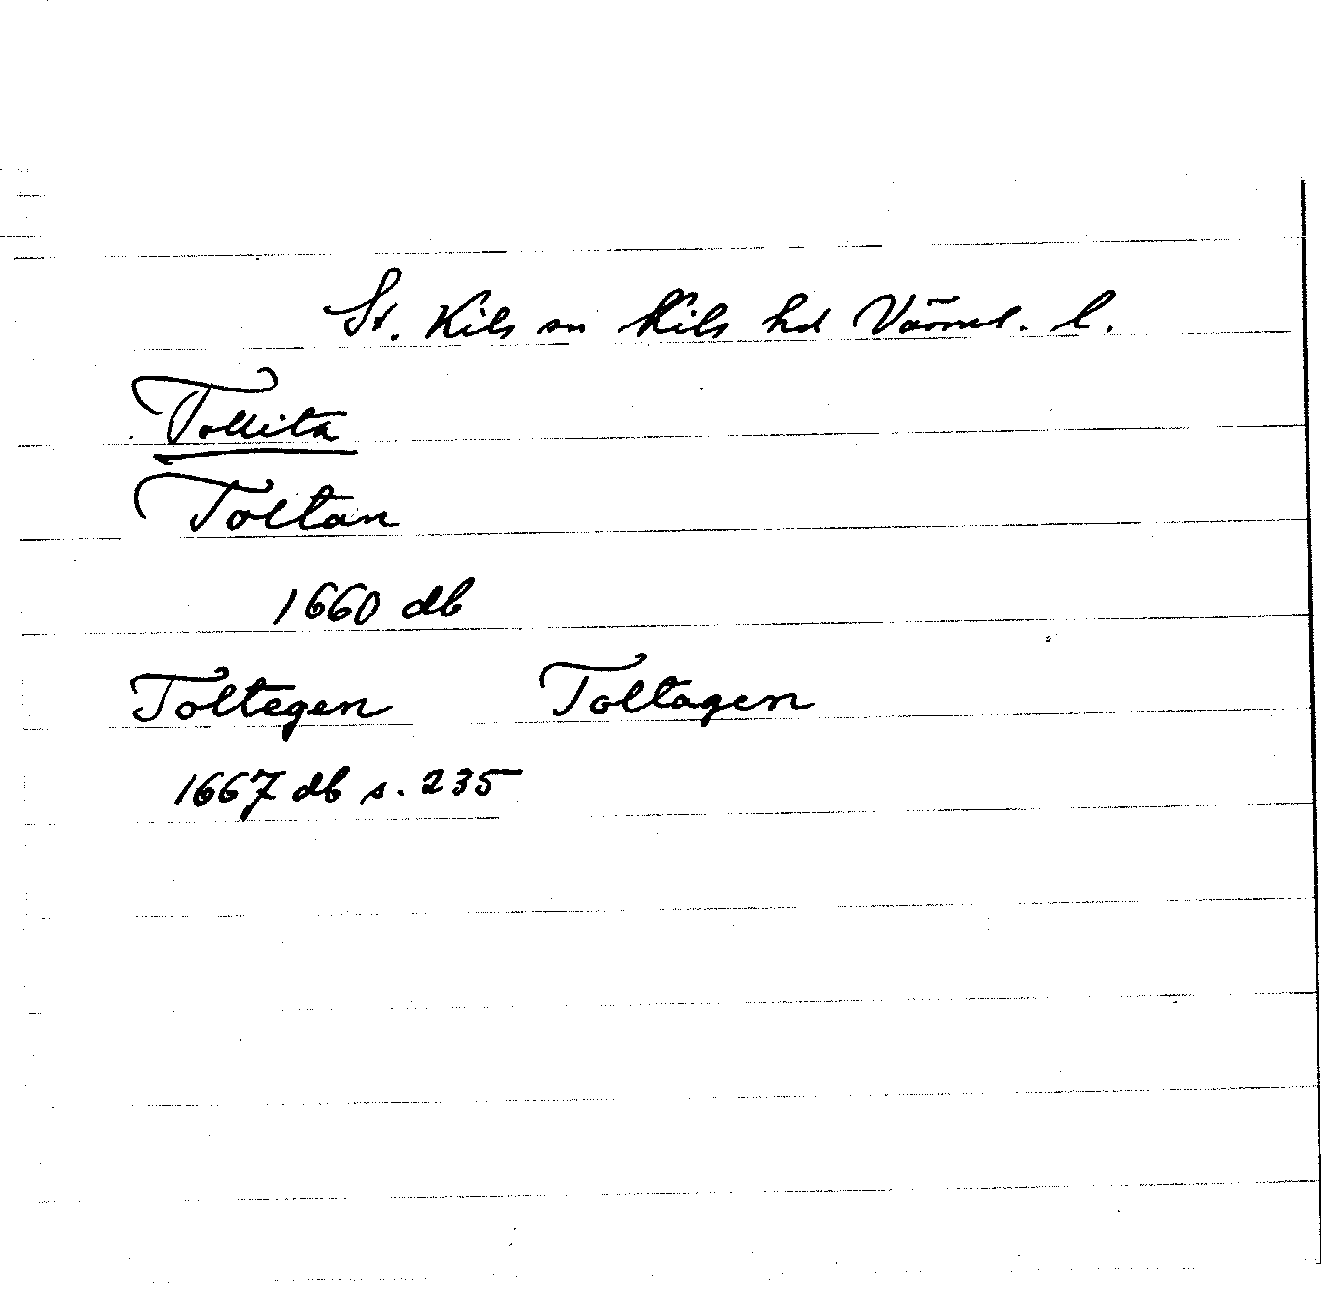 St. Kils sn Kils hd Värml. l.
Tollita
Toltan
1660 db
Toltegen Toltagen
1667 db s. 235